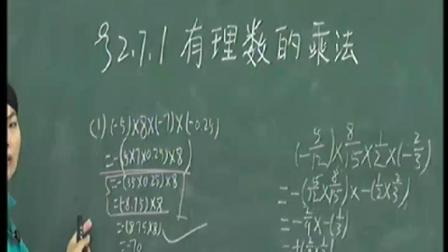 §2.7.1 有理数的乘法
(1) (-5)×8×(-7)×(-0.25)
=-(5×7×0.25)×8
=-(35×0.25)×8
=(-8.75)×8
=-(8.75×8)
=-70
(-5/12)×8/15×1/2×(-2/3)
=-(5/12×8/15)×-(1/2×2/3)
=-2/9×-(1/3)